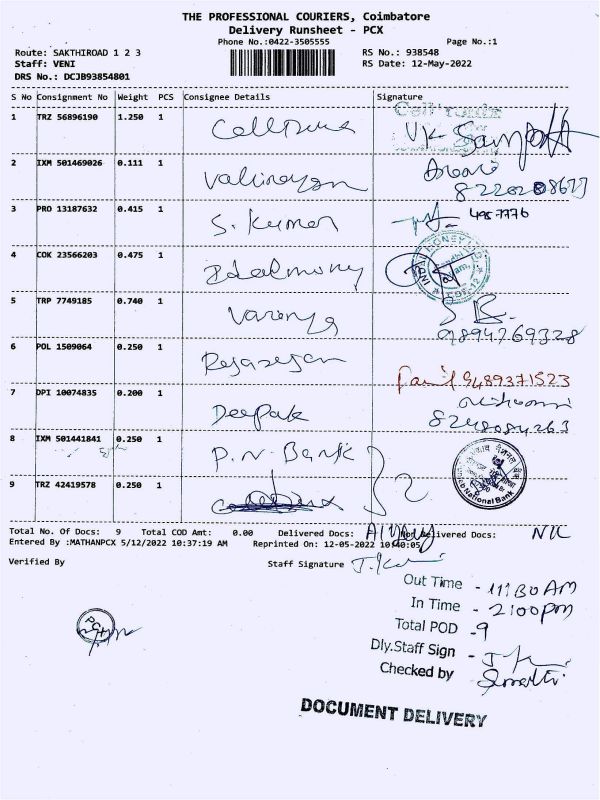 THE PROFESSIONAL COURIERS, Coimbatore
Delivery Runsheet - PCX
Phone No.:0422-3505555
Page No.:1
Route: SAKTHIROAD 1 2 3
RS No.: 938548
Staff: VENI
RS Date: 12-May-2022
DRS No.: DCJB93854801
S No Consignment No Weight PCS Consignee Details Signature
1 TRZ 56896190 1.250 1
2 IXM 501469026 0.111 1
3 PRO 13187632 0.415 1 S. Kumar
4 COK 23566203 0.475 1
5 TRP 7749185 0.740 1 Varenya
9894769328
6 POL 1509064 0.250 1
9489371523
7 DPI 10074835 0.200 1 Deepak
8248084263
8 IXM 501441841 0.250 1 P.N. Bank
National Bank
9 TRZ 42419578 0.250 1 2
Total No. Of Docs: 9 Total COD Amt: 0.00 Delivered Docs: Not Delivered Docs: NIL
Entered By :MATHANPCX 5/12/2022 10:37:19 AM Reprinted On: 12-05-2022 10:40:05
Verified By Staff Signature
Out Time - 11:30 AM
In Time - 2:00pm
Total POD - 9
Dly.Staff Sign -
Checked by
PCX
DOCUMENT DELIVERY